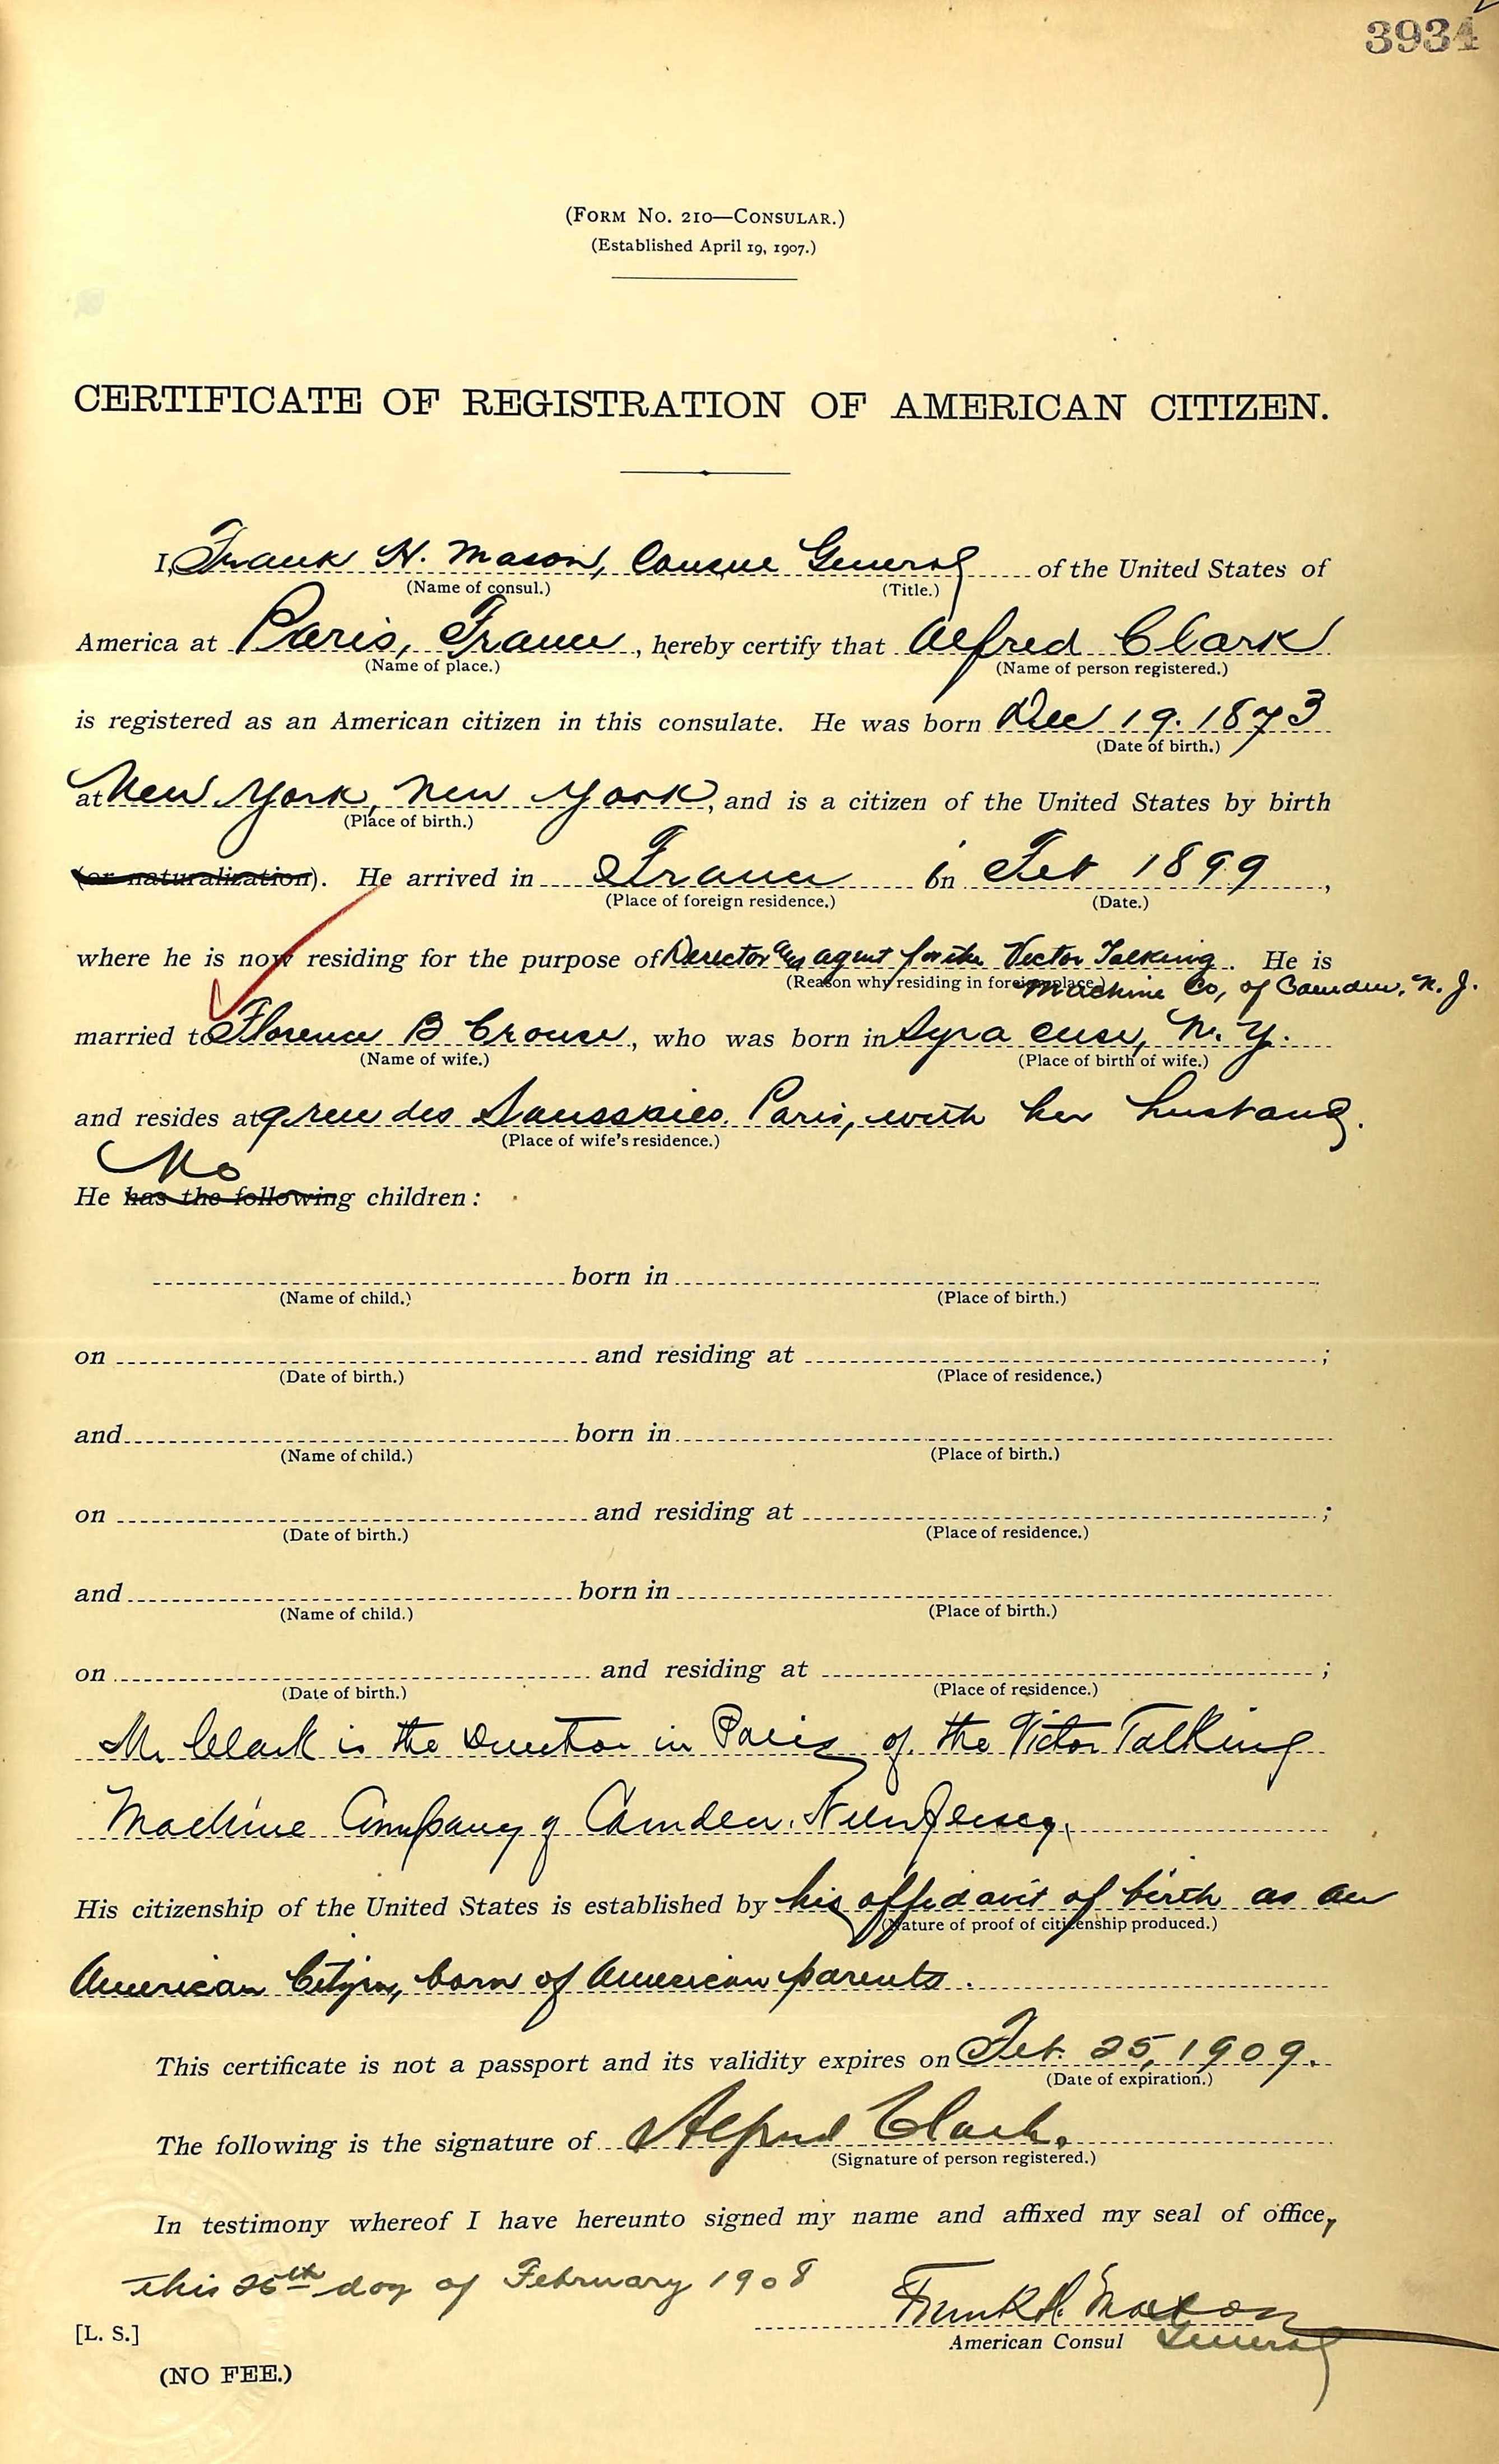 3934
(FORM NO. 210—CONSULAR.)
(Established April 19, 1907.)
CERTIFICATE OF REGISTRATION OF AMERICAN CITIZEN.
I, Frank H. Mason, Consul General of the United States of
(Name of consul.) (Title.)
America at Paris, France, hereby certify that Alfred Clark
(Name of place.) (Name of person registered.)
is registered as an American citizen in this consulate. He was born Dec 19. 1873
(Date of birth.)
at New York, New York, and is a citizen of the United States by birth
(Place of birth.)
(or naturalization). He arrived in France in Feb 1899,
(Place of foreign residence.) (Date.)
where he is now residing for the purpose of Director agent for the Victor Talking. He is
(Reason why residing in foreign place.) Machine Co, of Camden, N. J.
married to Florence B Crouse, who was born in Syracuse, N. Y.
(Name of wife.) (Place of birth of wife.)
and resides at 9 rue des Saussaies. Paris, with her husband.
(Place of wife's residence.)
No
He has the following children:
born in
(Name of child.) (Place of birth.)
on and residing at ;
(Date of birth.) (Place of residence.)
and born in
(Name of child.) (Place of birth.)
on and residing at ;
(Date of birth.) (Place of residence.)
and born in
(Name of child.) (Place of birth.)
on and residing at ;
(Date of birth.) (Place of residence.)
Mr Clark is the Director in Paris of the Victor Talking
Machine Company of Camden. New Jersey.
His citizenship of the United States is established by his affidavit of birth as an
(Nature of proof of citizenship produced.)
American Citizen, born of American parents.
This certificate is not a passport and its validity expires on Feb. 25, 1909.
(Date of expiration.)
The following is the signature of Alfred Clark.
(Signature of person registered.)
In testimony whereof I have hereunto signed my name and affixed my seal of office,
this 25th day of February 1908
Frank H. Mason
[L. S.] American Consul General
(NO FEE.)